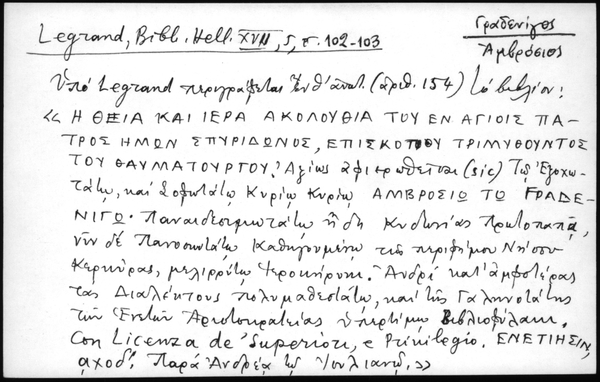 Legrand, Bibl. Hell. XVII, 5, σ. 102-103
Γραδενίγος
Ἀμβρόσιος
Ὑπό Legrand περιγράφεται (ἀριθ. 154) τό βιβλίον:
« Η ΘΕΙΑ ΚΑΙ ΙΕΡΑ ΑΚΟΛΟΥΘΙΑ ΤΟΥ ΕΝ ΑΓΙΟΙΣ ΠΑ-
ΤΡΟΣ ΗΜΩΝ ΣΠΥΡΙΔΩΝΟΣ, ΕΠΙΣΚΟΠΟΥ ΤΡΙΜΥΘΟΥΝΤΟΣ
ΤΟΥ ΘΑΥΜΑΤΟΥΡΓΟΥ. Ἀξίως ἀφιερωθεῖσα (sic) Τῷ Ἐξοχω-
τάτῳ, καί Σοφωτάτῳ Κυρίῳ Κυρίῳ ΑΜΒΡΟΣΙῼ Τῼ ΓΡΑΔΕ-
ΝΙΓῼ. Παναιδεσιμωτάτῳ ἤδη Κυδωνίας Πρωτοπαπᾷ,
νῦν δέ Πανοσιωτάτῳ Καθηγουμένῳ τῆς περιφήμου Νήσου
Κερκύρας, μελιρρύτῳ Ἱεροκήρυκι. Ἀνδρί κατ' ἀμφοτέρας
τάς Διαλέκτους πολυμαθεστάτῳ, καί τῆς Γαληνοτάτης
τῶν Ἑνετῶν Ἀριστοκρατείας ὑπερτίμῳ Βιβλιοφύλακι.
Con Licenza de' Superiori, e Privilegio. ΕΝΕΤΙΗΣΙΝ,
αχοδ'. Παρά Ἀνδρέᾳ τῷ Ἰουλιανῷ. »